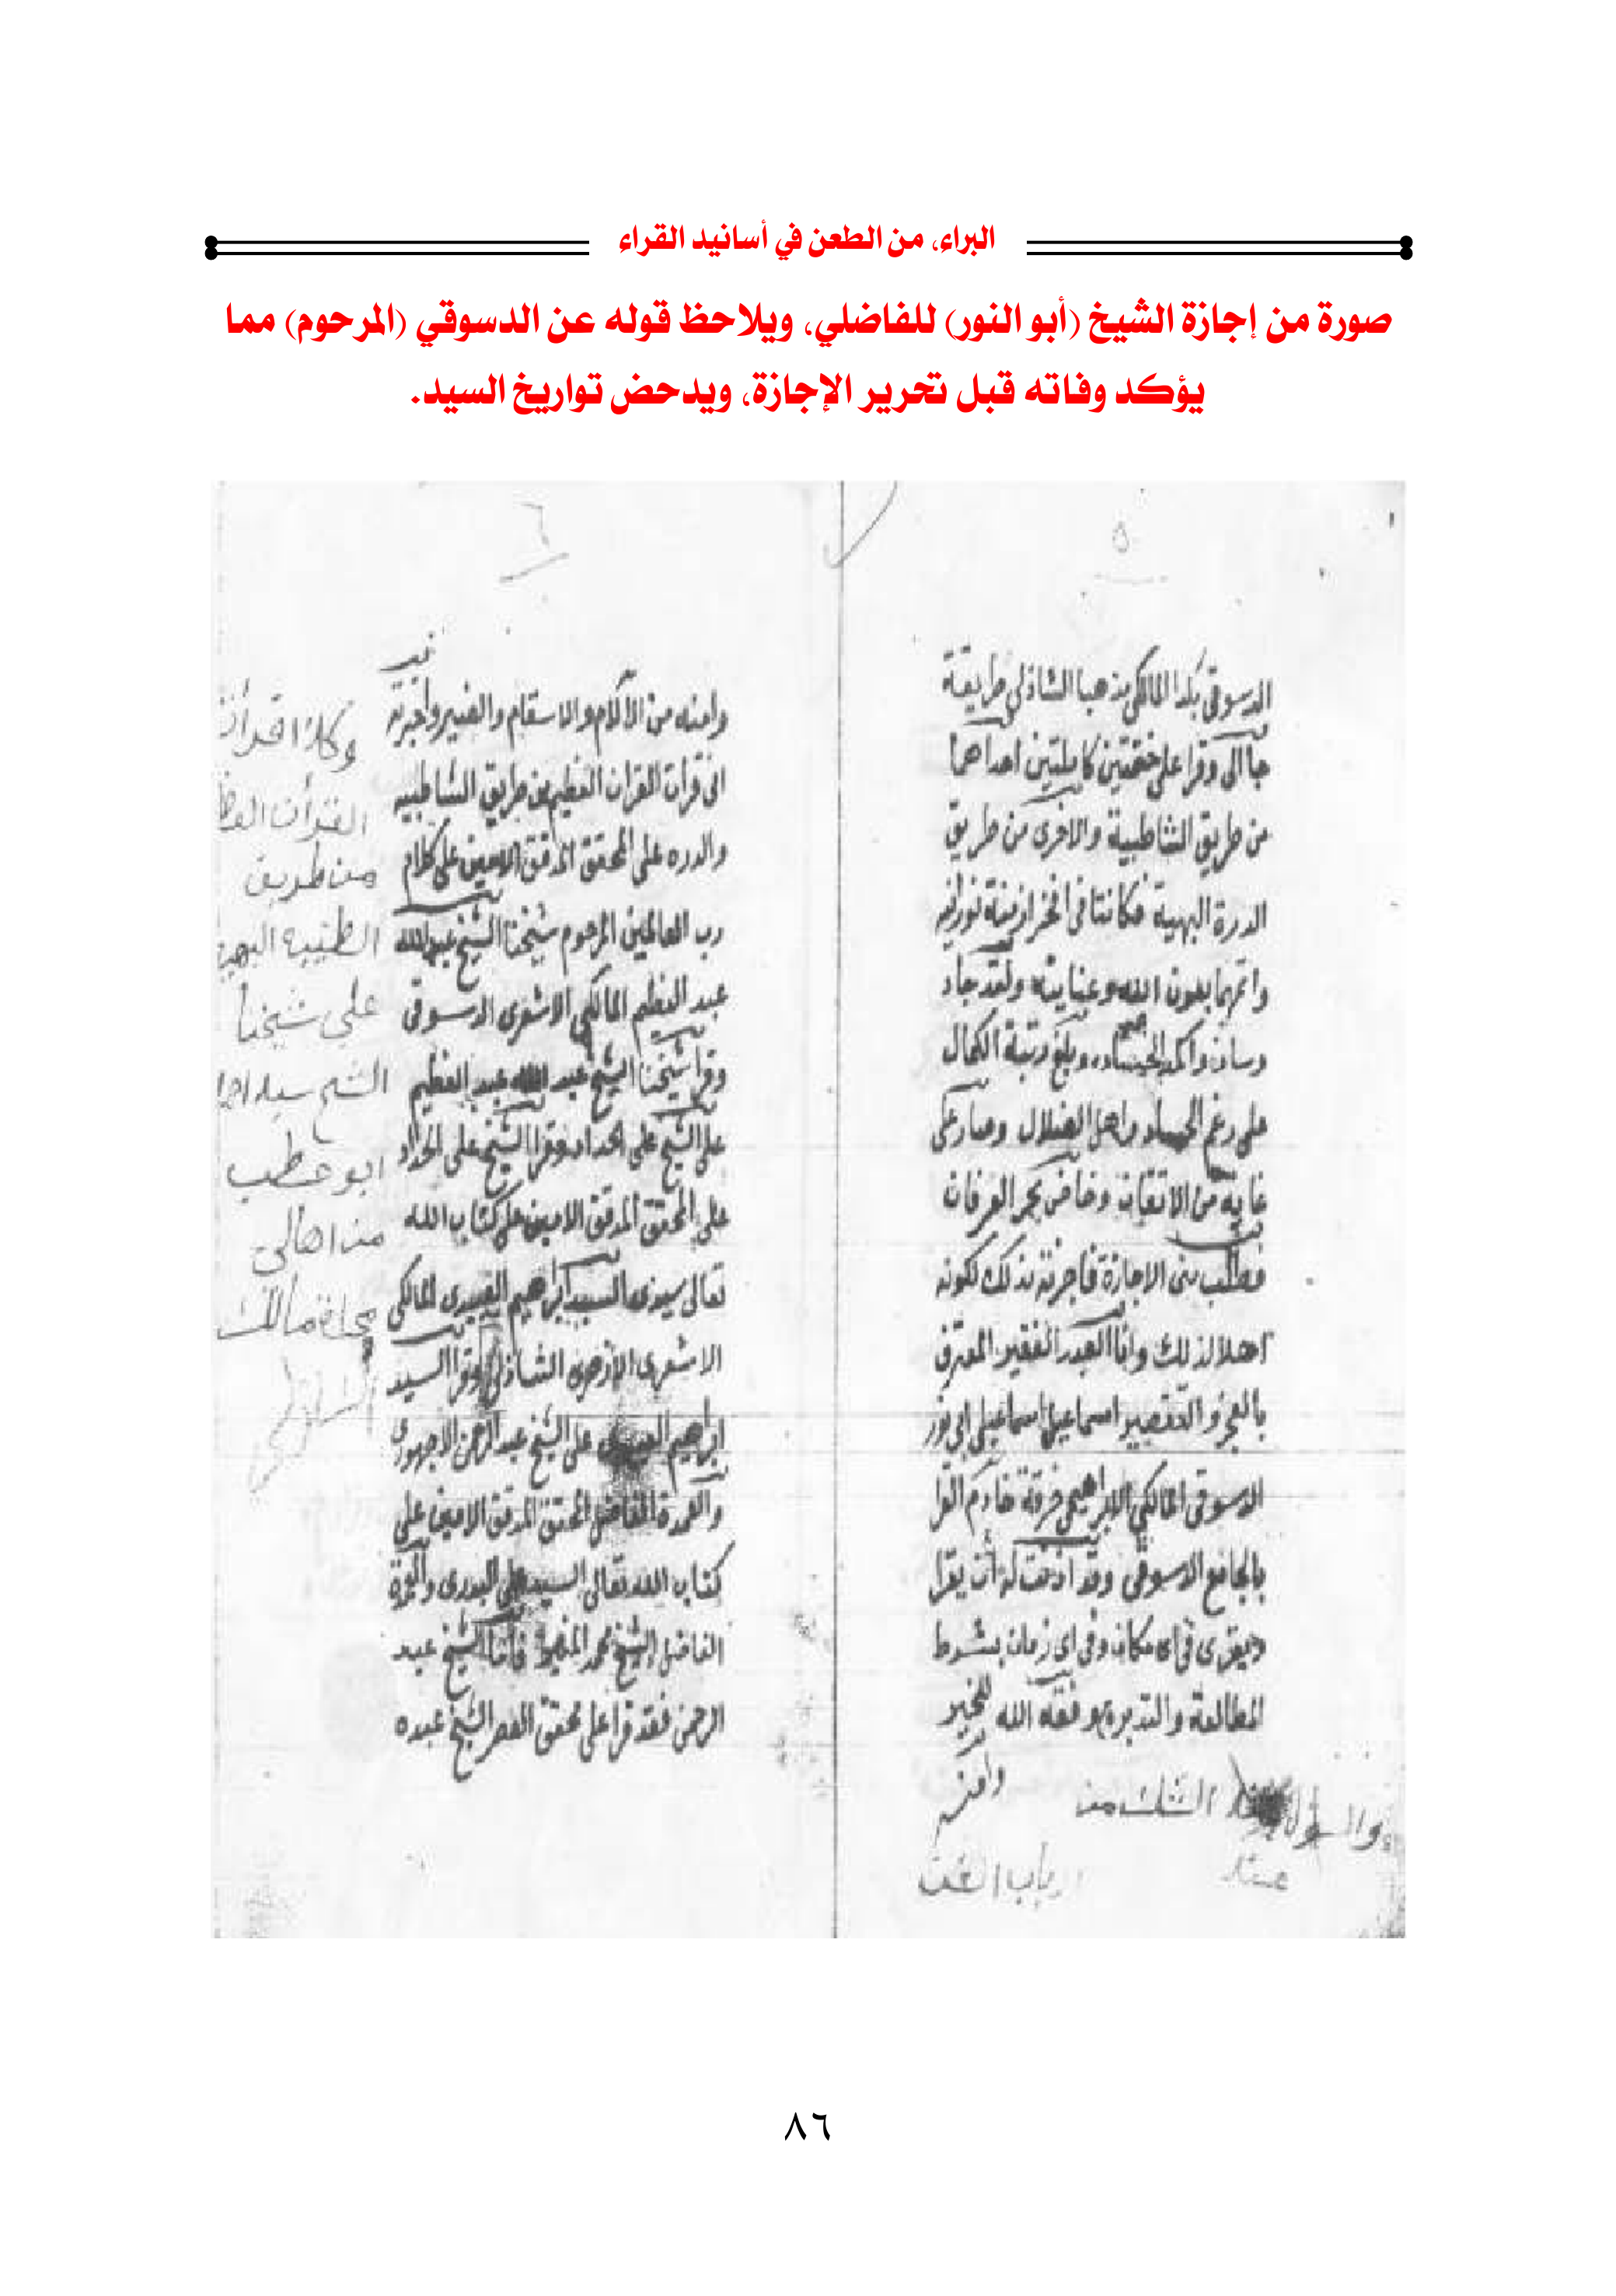 البراء، من الطعن في أسانيد القراء
صورة من إجازة الشيخ (أبو النور) للفاضلي، ويلاحظ قوله عن الدسوقي (المرحوم) مما
يؤكد وفاته قبل تحرير الإجازة، ويدحض تواريخ السيد.
٥
الدسوقي بلدا المالكي مذهبا الشاذلي طريقة
جاالى وقرا على ختمتين كاملتين احداهما
من طريق الشاطبية والاخرى من طريق
الدرة البهية فكانتا في
واتمهما بعون الله وعنايته ولقد جاد
وساد وبلغ رتبة الكمال
على رغم الحساد واهل الضلال وصار على
غاية من الاتقان وخاض بحر العرفان
فطلب منى الاجازة فاجزته بذلك لكونه
اهلا لذلك وانا العبد الفقير المعترف
بالعجز والتقصير اسماعيل اسماعيل ابي نور
الدسوقى المالكي الابراهيمي خرقة خادم القرا
بالجامع الدسوقى وقد اذنت له أن يقرا
ويقرى فى اى مكان وفى اى زمان بشرط
المطالعة والتدبر وفقه الله للخير
وامنه
٦
وامنه من الآلام والاسقام والضير واجزته
انى قرات القران العظيم من طريق الشاطبيه
والدره على المحقق المدقق الامين على كلام
رب العالمين المرحوم شيخنا الشيخ عبدالله
عبد العظيم المالكي الاشعرى الدسوقى
وقرا شيخنا الشيخ عبد الله عبد العظيم
على الشيخ على الحداد وقرا الشيخ على الحداد
على المحقق المدقق الامين على كتاب الله
تعالى سيدى السيد ابراهيم العبيدى المالكى
الاشعرى الازهرى الشاذلى وقرا السيد
ابراهيم العبيدى على الشيخ عبد الرحمن الاجهورى
والعمدة الفاضل المحقق المدقق الامين على
كتاب الله تعالى السيد على البدرى
الفاضل الشيخ محمد المنير فأما الشيخ عبد
الرحمن فقد قرا على محقق العصر الشيخ عبده
وكذا قرات
القرأن
من طريق
الطيبه
على شيخنا
الشيخ سيد
ابو حطب
من اهالى
٨٦